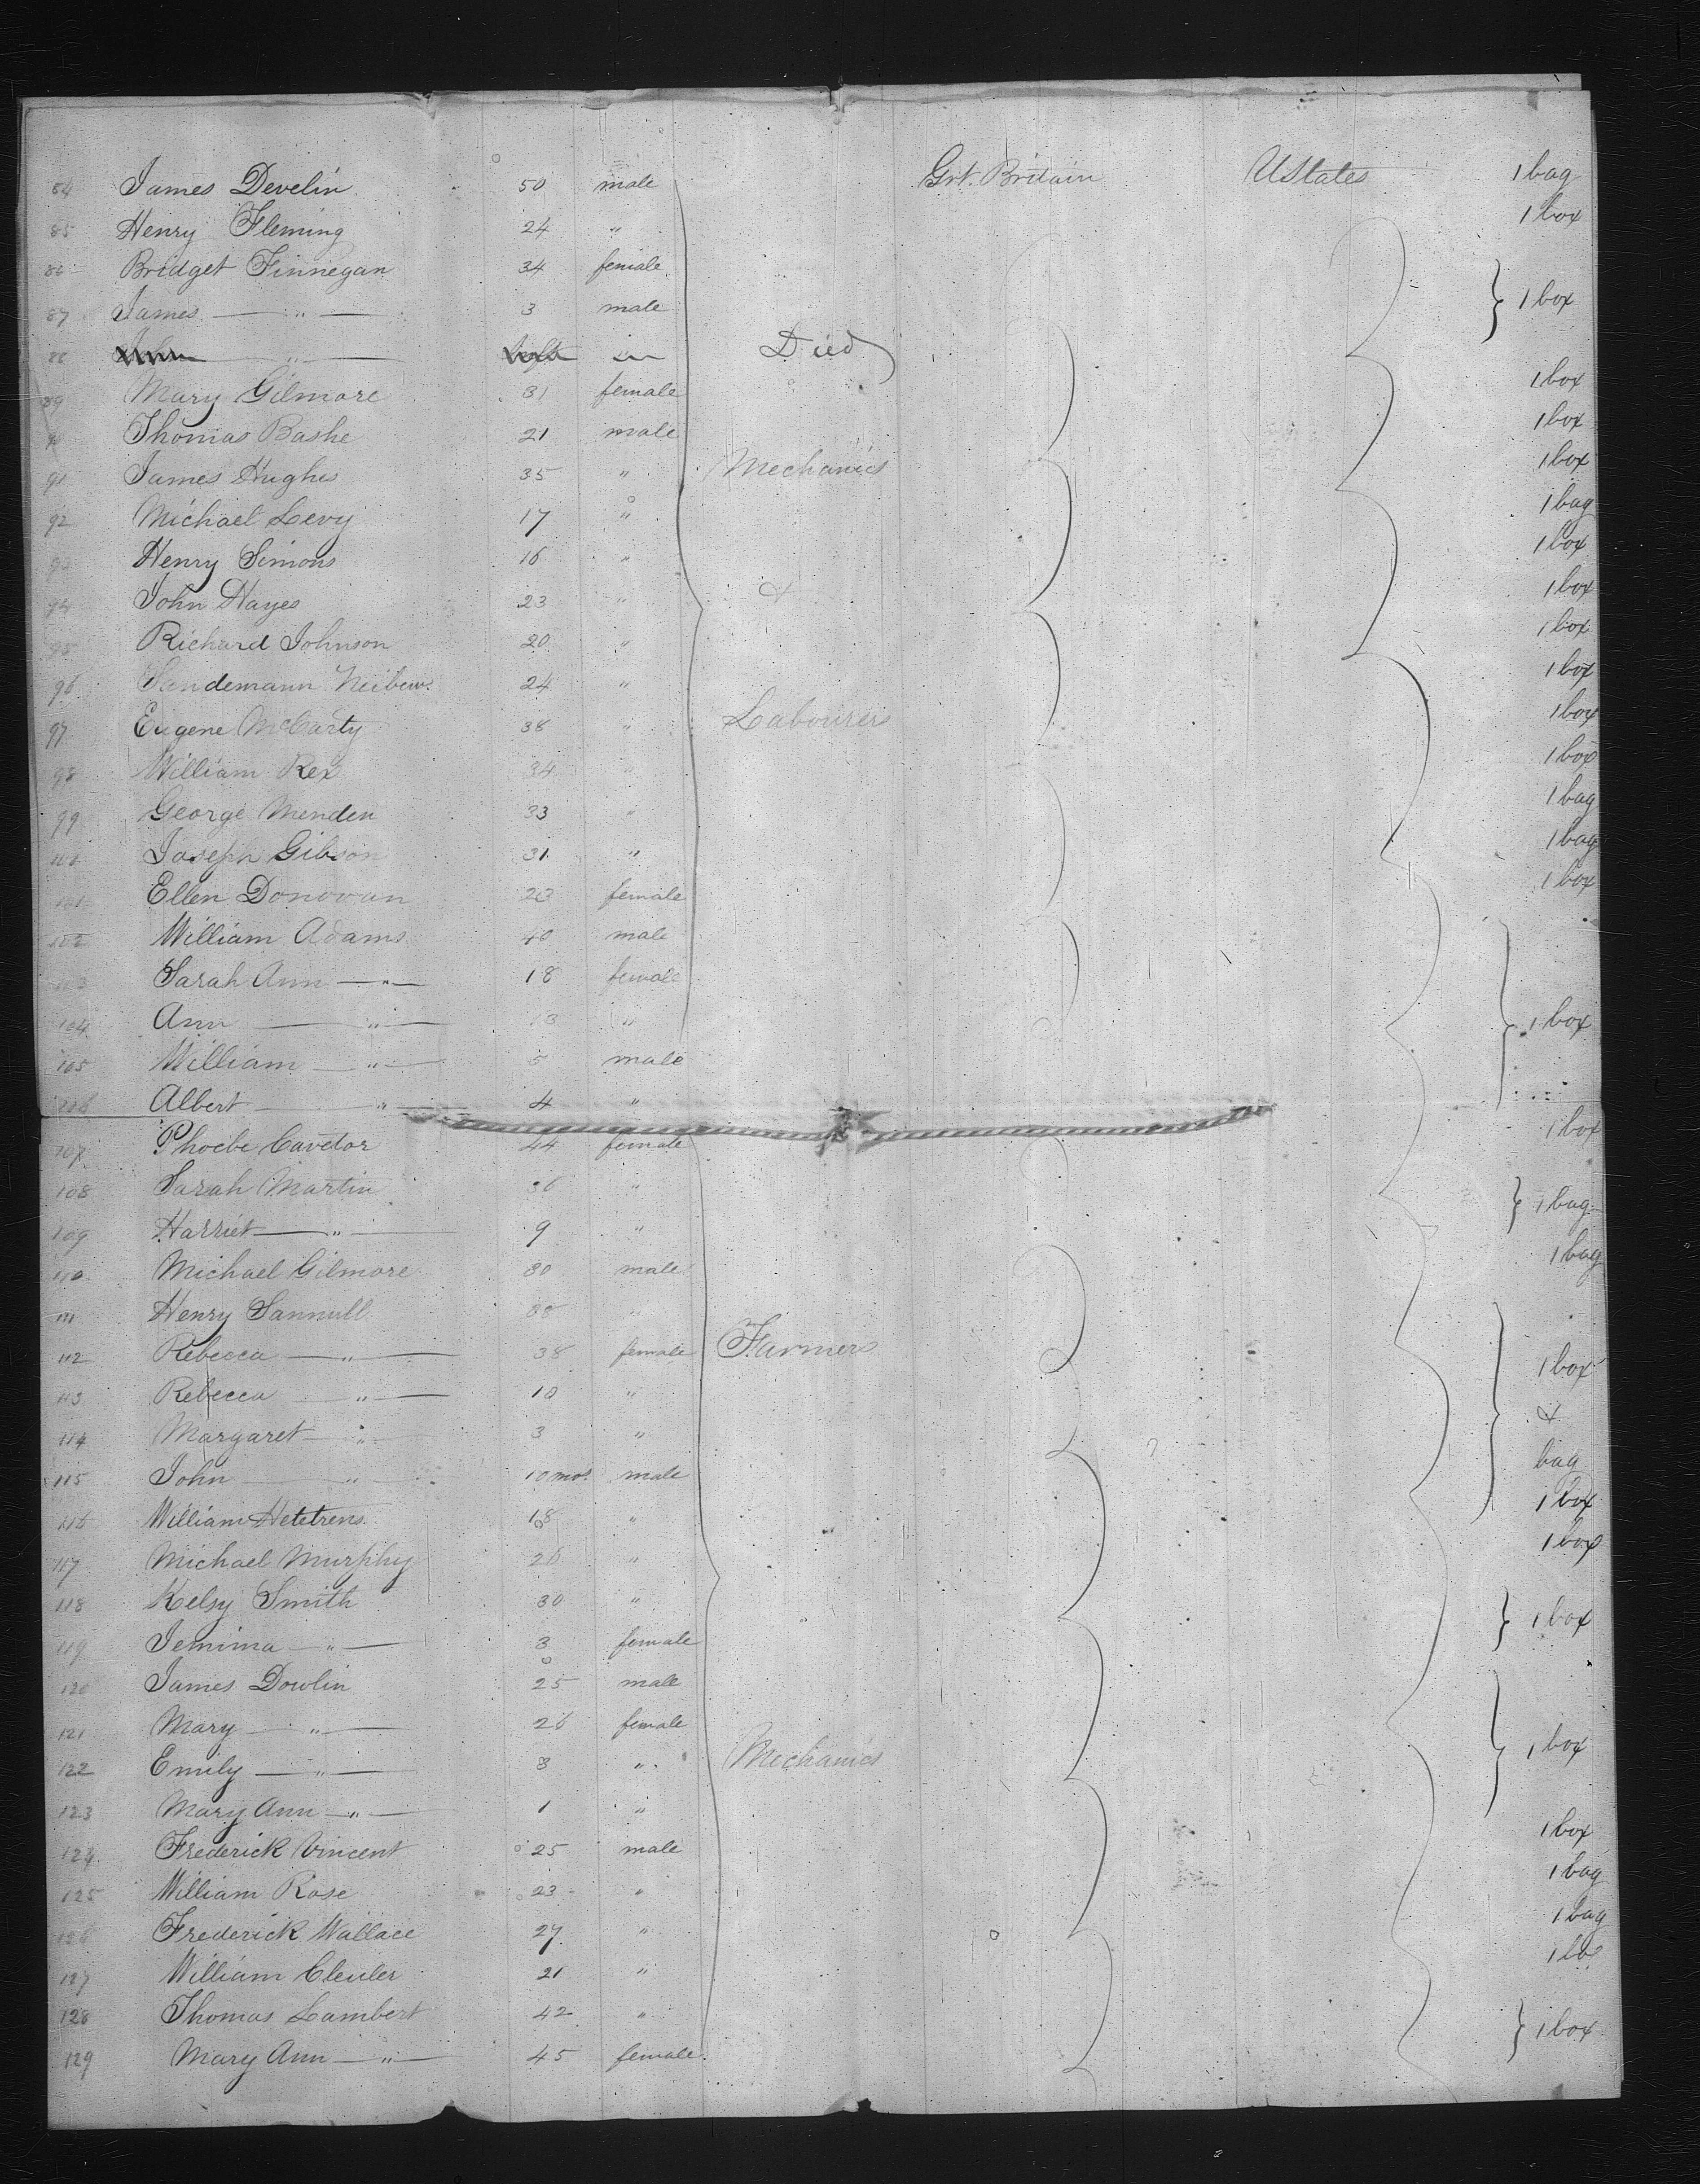 84 James Develin 50 male Grt. Britain UStates 1 bag
85 Henry Fleming 24 " 1 box
86 Bridget Finnegan 34 female
87 James — " — 3 male } 1 box
88 — " — Died
89 Mary Gilmore 31 female 1 box
90 Thomas Bashe 21 male 1 box
91 James Hughes 35 " Mechanics 1 box
92 Michael Levy 17 " 1 bag
93 Henry Simons 16 " 1 box
94 John Hayes 23 " & 1 box
95 Richard Johnson 20 " 1 box
96 Sandemann 24 " 1 box
97 Eugene McCarty 38 " Labourers 1 box
98 William Rex 34 " 1 box
99 George Menden 33 " 1 bag
100 Joseph Gibson 31 " 1 bag
101 Ellen Donovan 23 female 1 box
102 William Adams 40 male
103 Sarah Ann — " — 18 female
104 Ann — " — 13 " } 1 box
105 William — " — 5 male
106 Albert — " — 4 "
107 Phoebe Cavetor 44 female 1 box
108 Sarah Martin 36 " } 1 bag
109 Harriet — " — 9 "
110 Michael Gilmore 30 male 1 bag
111 Henry Sannull "
112 Rebecca — " — 38 female Farmers 1 box
113 Rebecca — " — 10 "
114 Margaret — " — 3 " &
115 John — " — 10 mos. male bag
116 William 18 " 1 box
117 Michael Murphy 26 " 1 box
118 Kelsy Smith 30 " } 1 box
119 Jemima — " — 3 female
120 James Dowlin 25 male
121 Mary — " — 26 female
122 Emily — " — 3 " Mechanics } 1 box
123 Mary Ann — " — 1 "
124 Frederick Vincent 25 male 1 box
125 William Rose 23 " 1 bag
126 Frederick Wallace 27 " 1 bag
127 William Cleuler 21 " 1 box
128 Thomas Lambert 42 " } 1 box
129 Mary Ann — " — 45 female